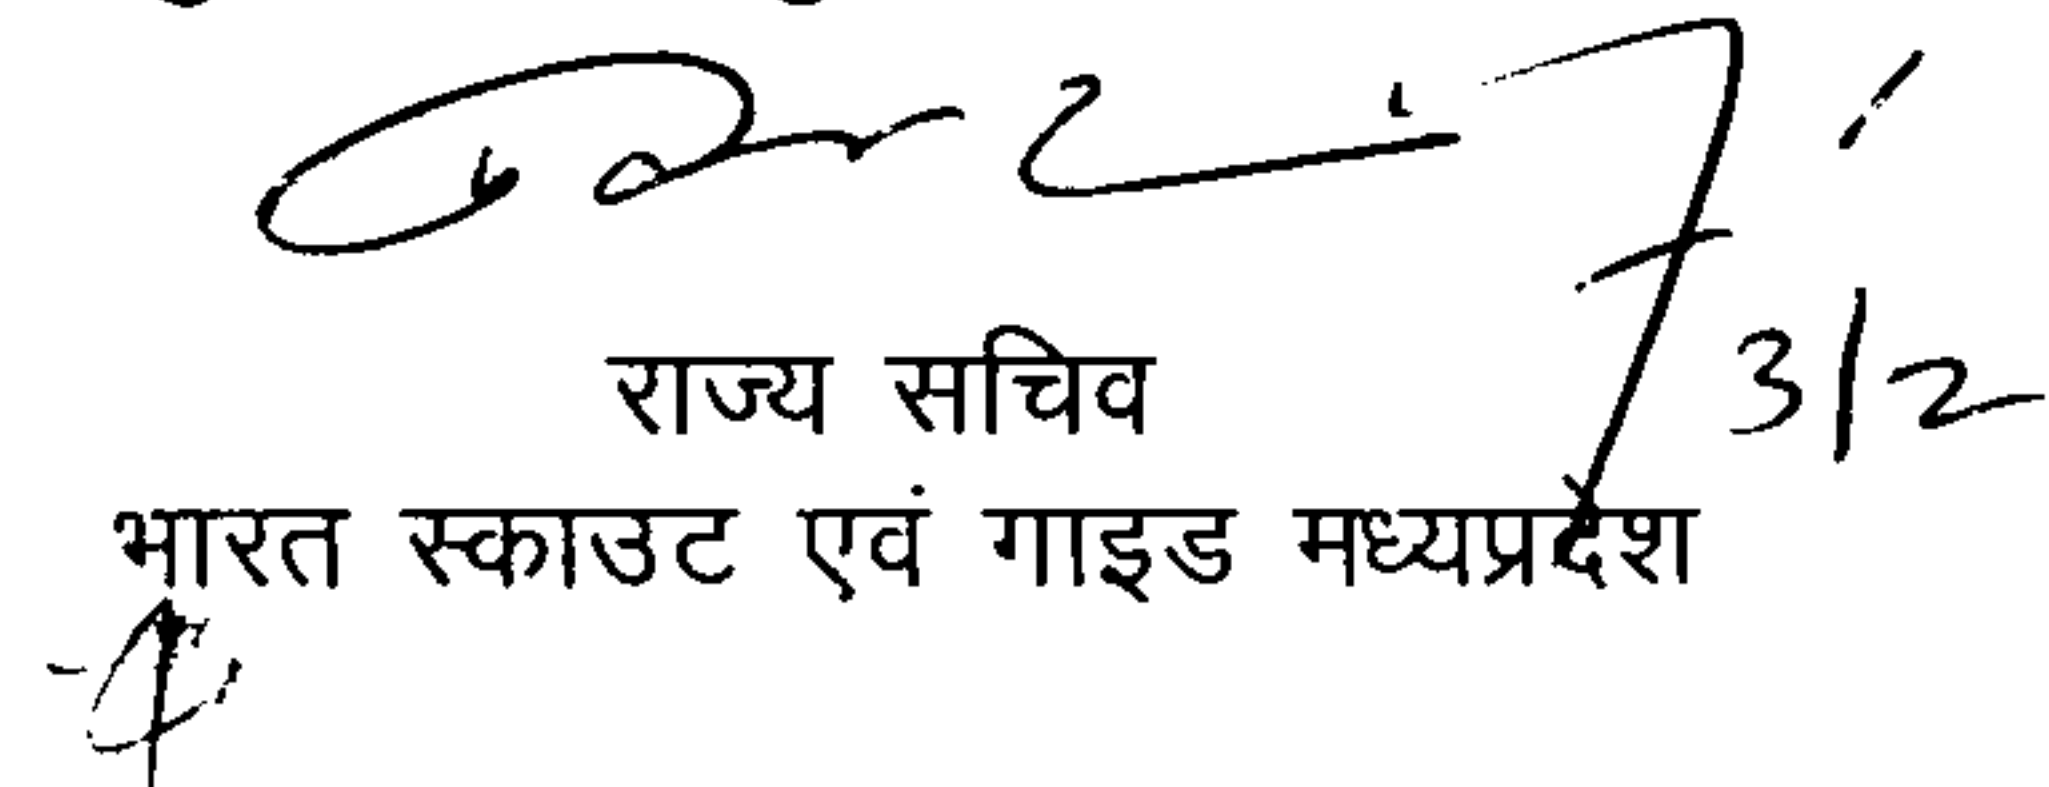 3/2
राज्य सचिव
भारत स्काउट एवं गाइड मध्यप्रदेश